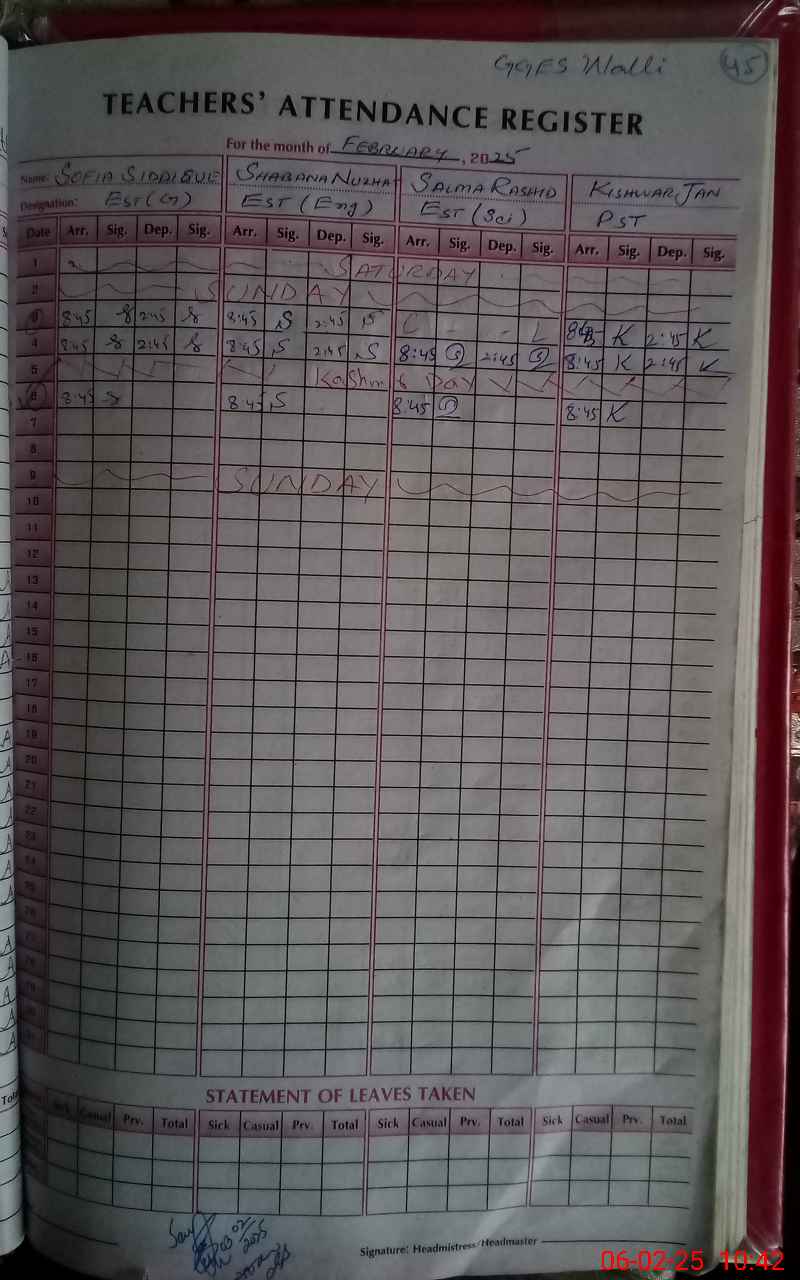 GGES Walli 45
TEACHERS' ATTENDANCE REGISTER
For the month of FEBRUARY, 2025
Name: SOFIA SIDDIQUE SHABANA NUZHAT SALMA RASHID KISHWAR JAN
Designation: EST (G) EST (Eng) EST (Sci) PST
Date Arr. Sig. Dep. Sig. Arr. Sig. Dep. Sig. Arr. Sig. Dep. Sig. Arr. Sig. Dep. Sig.
1 SATURDAY
2 SUNDAY
3 8:45 2:45 8:45 S 2:45 S C - - L K 2:45 K
4 8:45 2:45 8:45 S 2:45 S 8:45 2:45 8:45 K 2:45 K
5 Kashmir Day
6 8:45 8:45 S 8:45 8:45 K
7
8
9 SUNDAY
10
11
12
13
14
15
16
17
18
19
20
21
22
23
24
25
STATEMENT OF LEAVES TAKEN
Sick Casual Prv. Total Sick Casual Prv. Total Sick Casual Prv. Total Sick Casual Prv. Total
Signature: Headmistress/Headmaster
06-02-25 10:42